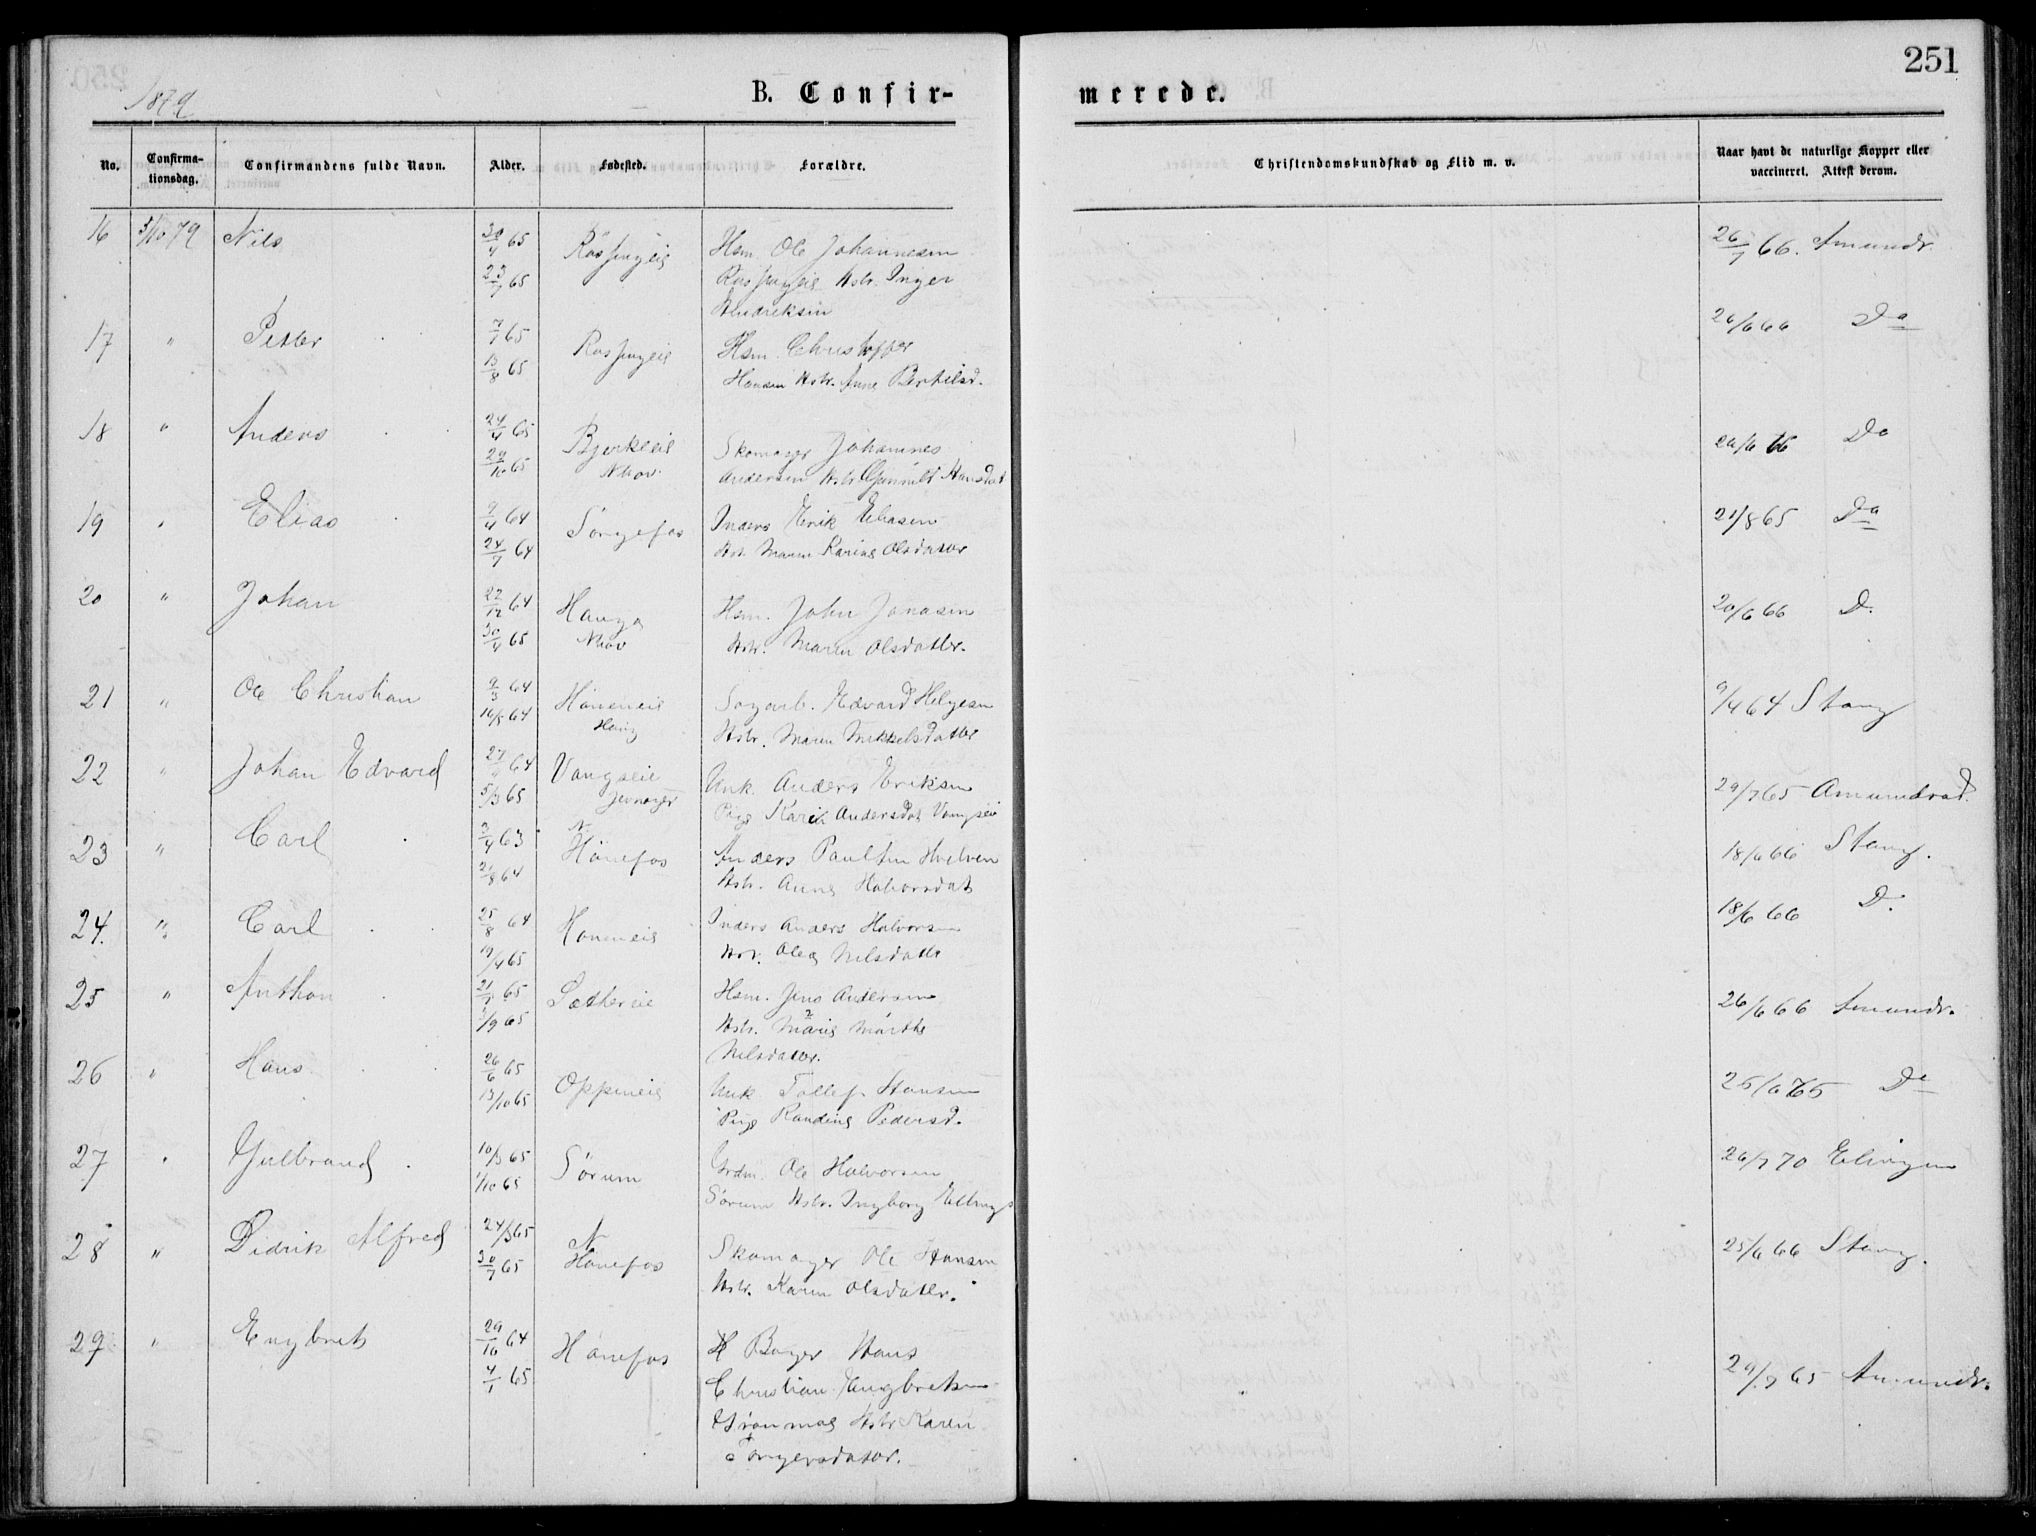 251
1879
B. Confir-
merede.
No.
Confirma-
tionsdag.
Confirmandens fulde Navn.
Alder.
Fødested.
Forældre.
Christendomskundskab og Flid m. v.
Naar havt de naturlige Kopper eller
vaccineret. Attest derom.
16 5/10 79 Nils 30/4 65 23/7 65
Hsm. Ole Johannesen
Hstr. Inger
26/7 66. Amundr.
17 " Petter 7/7 65 13/8 65
Hsm. Christopher
Hansen Hstr. Anne Bertilsd.
26/6 66 Do
18 " Anders 24/4 65 29/10 65 Bjerkeeie
Nhov.
Skomager Johannes
Andersen Hstr. Gunnild Hansdat
26/6 66 Do
19 " Elias 9/4 64 24/7 64 Songefos
Inders Erik Eliasen
Hst. Maren Karine Olsdatter
21/8 65 Do
20 " Johan 22/12 64 30/4 65 Hauga
Nhov
Hsm. John Jonasen
Hstr. Maren Olsdatter.
20/6 66 D.
21 " Ole Christian 9/3 64 16/5 64 Høneneie
Haug
Sagarb. Edvard Helgesen
Hstr. Maren Mikkelsdatter
9/4 64 Stang
22 " Johan Edvard 27/ 64 5/3 65 Vangseie
Jevnager
Unk. Anders Eriksen
Pige Kari Andersdat Vangseie
29/7 65 Amundrød.
23 " Carl 3/4 63 21/8 64 N
Hønefos
Anders Paulsen Hvelven
Hstr. Anne Halvorsdat
18/6 66 Stang.
24. " Carl 25/8 64 19/4 65 Høneneie
Inders Anders Halvorsen
Hstr. Olea Nilsdatter
18/6 66 D.
25 " Anthon 21/7 65 3/9 65 Sæthereie
Hsm. Jens Andersen
Hstr. Marie Marthe
Nilsdatter.
26/6 66 Amundr.
26 " Hans 26/6 65 15/10 65 Oppeneie
Unk. Tollef Hansen
Pige Randine Pedersd.
Do
27 " Gulbrand 10/3 65 1/10 65 Sørum
Grdm. Ole Halvorsen
Sørum Hstr. Ingborg Ellings
26/7 70 Ellingsen
28 " Didrik Alfred 24/3 65 30/7 65 N
Hønefos
Skomager Ole Hansen
Hstr. Karen Olsdatter.
25/6 66 Stang.
29 " Engbret 29/10 64 4/1 65 Hønefos
Bager Hans
Christian Engbretsen
Hstr Karen
Torgersdatter.
29/7 65 Amundr.